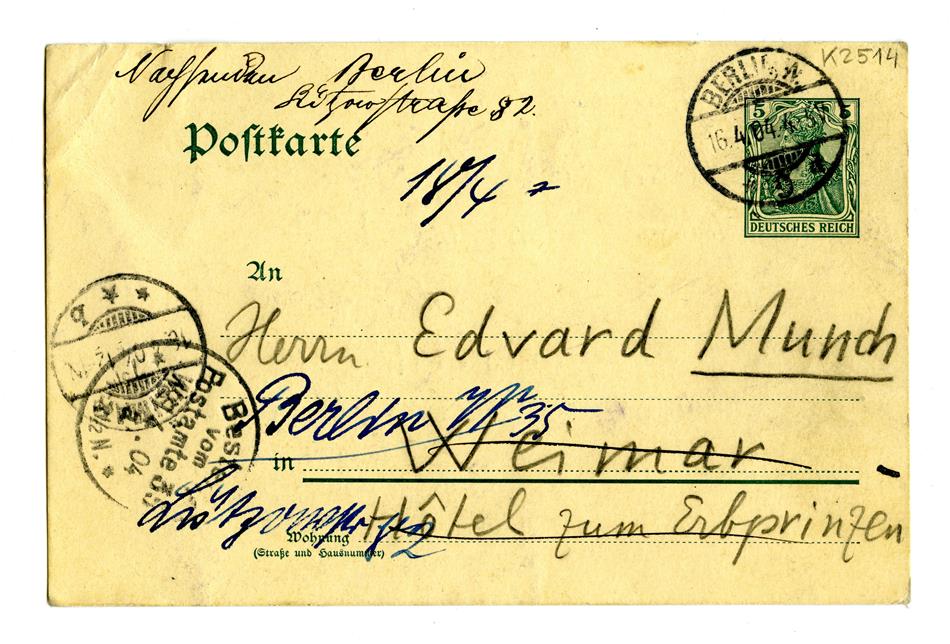 K2514
Nachsenden Berlin
Lützowstraße 82.
Postkarte
18/4
BERLIN
16.4.04.4
5 5
DEUTSCHES REICH
An
Herrn Edvard Munch
Berlin W 35
in Weimar
Lützowstr 82
Hôtel zum Erbprinzen
Wohnung
(Straße und Hausnummer)
Best
vom
Postamte 35
04
½ N.